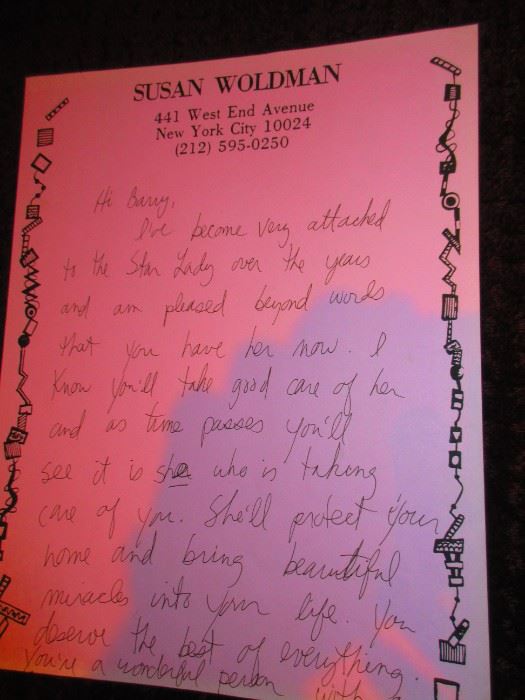 SUSAN WOLDMAN
441 West End Avenue
New York City 10024
(212) 595-0250
Hi Barry,
I've become very attached
to the Star Lady over the years
and am pleased beyond words
that you have her now. I
know you'll take good care of her
and as time passes you'll
see it is she who is taking
care of you. She'll protect your
home and bring beautiful
miracles into your life. You
deserve the best of everything.
You're a wonderful person with